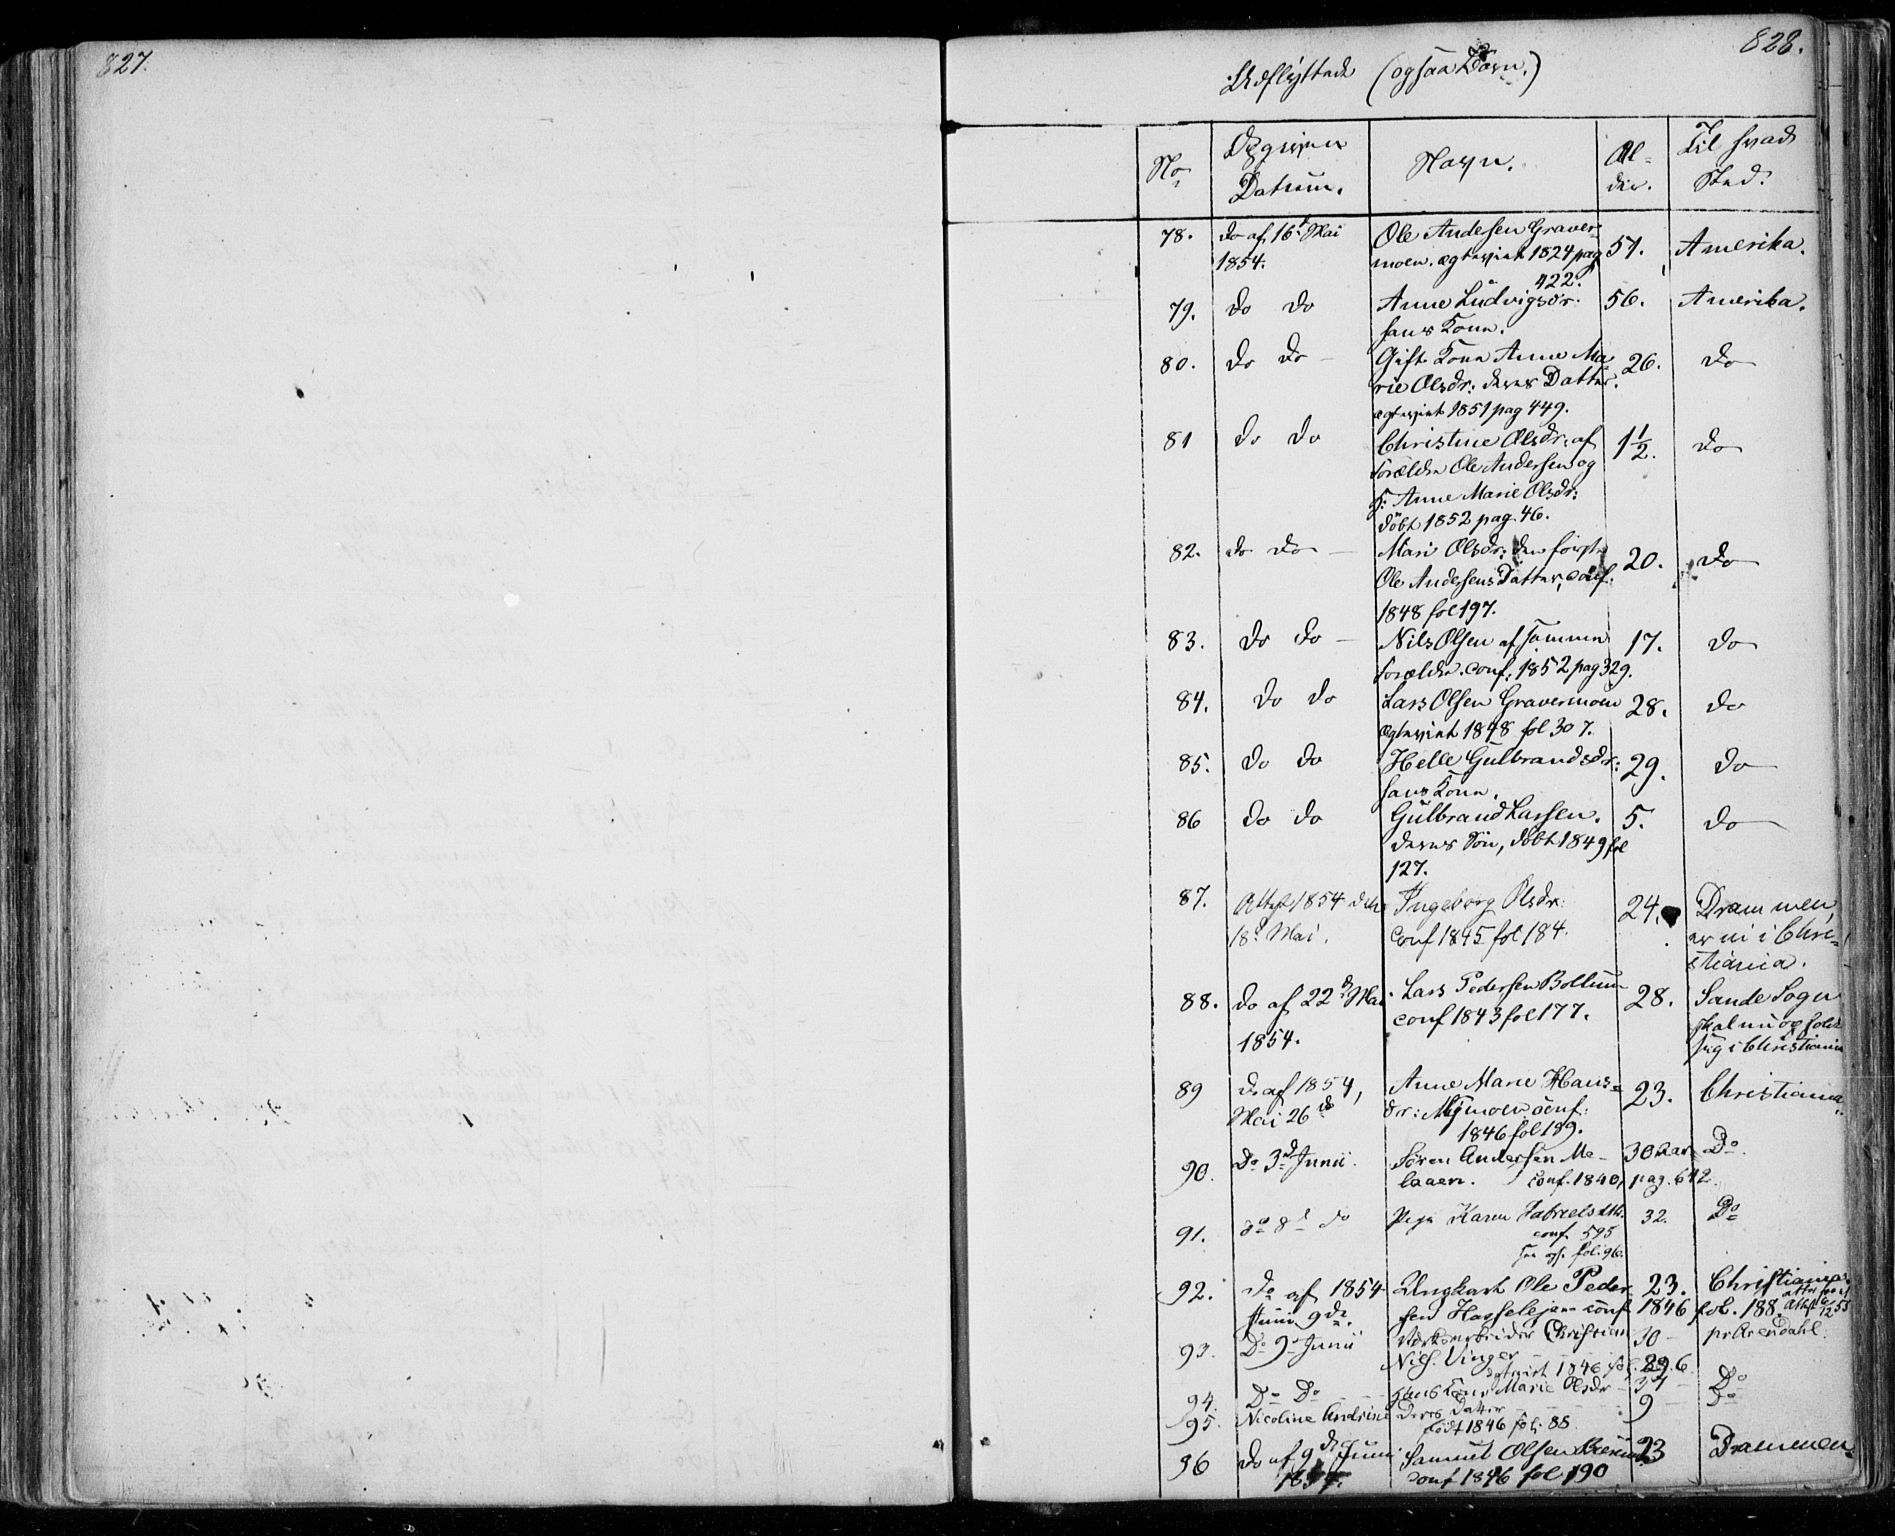 827.
828.
Udflyttede (ogsaa Børn.)
No
Opgiven Datum.
Navn.
Al-
der.
Til hvad
Sted.
78. do af 16d Mai
1854.
Ole Andersen Graver-
moen. ægteviet 1824 pag
422.
57. Amerika.
79. do do
Anne Ludvigsdr.
hans Kone.
56. Amerika.
80. do do -
Gift Kone Anne Ma
rie Olsdr: deres Datter.
ægteviet 1851 pag 449.
26. do
81 do do
Christine Olsdr. af
Forældre Ole Andersen og
H: Anne Marie Olsdr:
döbt 1852 pag. 46.
1 1/2. do
82. do do -
Mari Olsdr: den første
Ole Andersens Datter, conf.
1848 fol 197.
20. do
83. do do -
Nils Olsen af samme
Forældre. conf. 1852 pag 329.
17. do
84. do do
Lars Olsen Gravermoen
ægteviet 1848 fol 307.
28. do
85. do do
Helle Gulbrandsdr:
hans Kone.
29. do
86 do do
Gulbrand Larsen.
deres Sön, döbt 1849 fol
127.
5. do
87. Attest 1854 den
18d Mai.
Ingeborg Olsdr:
Conf 1845 fol 184.
24. Drammen,
er nu i Chri-
stiania.
88. do af 22d Mai
1854.
Lars Pedersen Bollum
conf 1843 fol 177.
28. Sande Sogn
skal nu opholde
sig i Christiania
89 do af 1854,
Mai 26de
Anne Marie Hans-
dr: Mymoen conf:
1846 fol 189.
23. Christiania.
90. Do 3d Junii.
Søren Andersen Me-
laaen. Conf. 1840, pag. 642.
30 Aar Do.
91. do 8d do
Pige Karen Gabrielsdtr.
conf 595
fol. 96.
32. Do
92. Do af 1854
Juni 9de.
Ungkarl Ole Peder
sen Hasselejern conf 1846 fol. 188.
23. Christiania
93. Do 9d Junii
Værksarbeider Christian
Niels. Vinger
ægteviet 1846 fol. 296.
30 - pr Arendahl.
94. Do Do - - -
Hans Kone Marie Olsdr - 37 - Do
95. Nicoline Andrine Deres Datter
född 1846 fol: 88
9 Do
96 do af 9de Juni
1854.
Samuel Olsen
conf 1846 fol 190
23 Drammen.